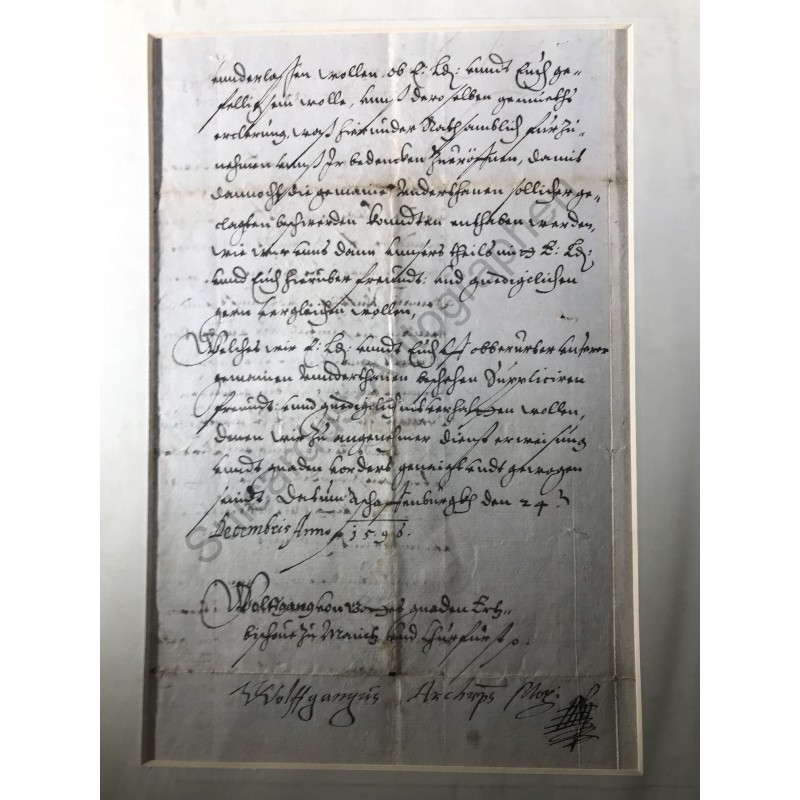 underlassen wollen, ob E. Ld: unndt Euch ge-
fellig sein wolle, unnß deroselben gemueths
erclerung, waß hierunder Rathsamblich fürzu-
nehmen unnß Ir bedencken zueröffnen, damit
dannocht die gemaine Underthanen sollicher ge-
clagten beschwerden konndten enthaben werden,
wie wir unns dann unnsers theils mitt E: Ld:
unnd Euch hierüber freundt: und gnediglichen
gern vergleichen wollen,
Welches wir E: Ld: unndt Euch uff obberürter unserer
gemainen Unnderthanen beschehen Suppliciren
freundt: unnd gnediglich nit verhalten wollen,
denen wir zu angenehmer dienst erweisung
unndt gnaden vorders geneigt undt gewogen
seindt. Datum Aschaffenburgkh den 24.
Decembris Anno 1596.
Wolffgang von Gottes gnaden Ertz-
bischoue zu Maintz unnd Churfürst.
Wolffgangus Archieps Mog:
Autographen